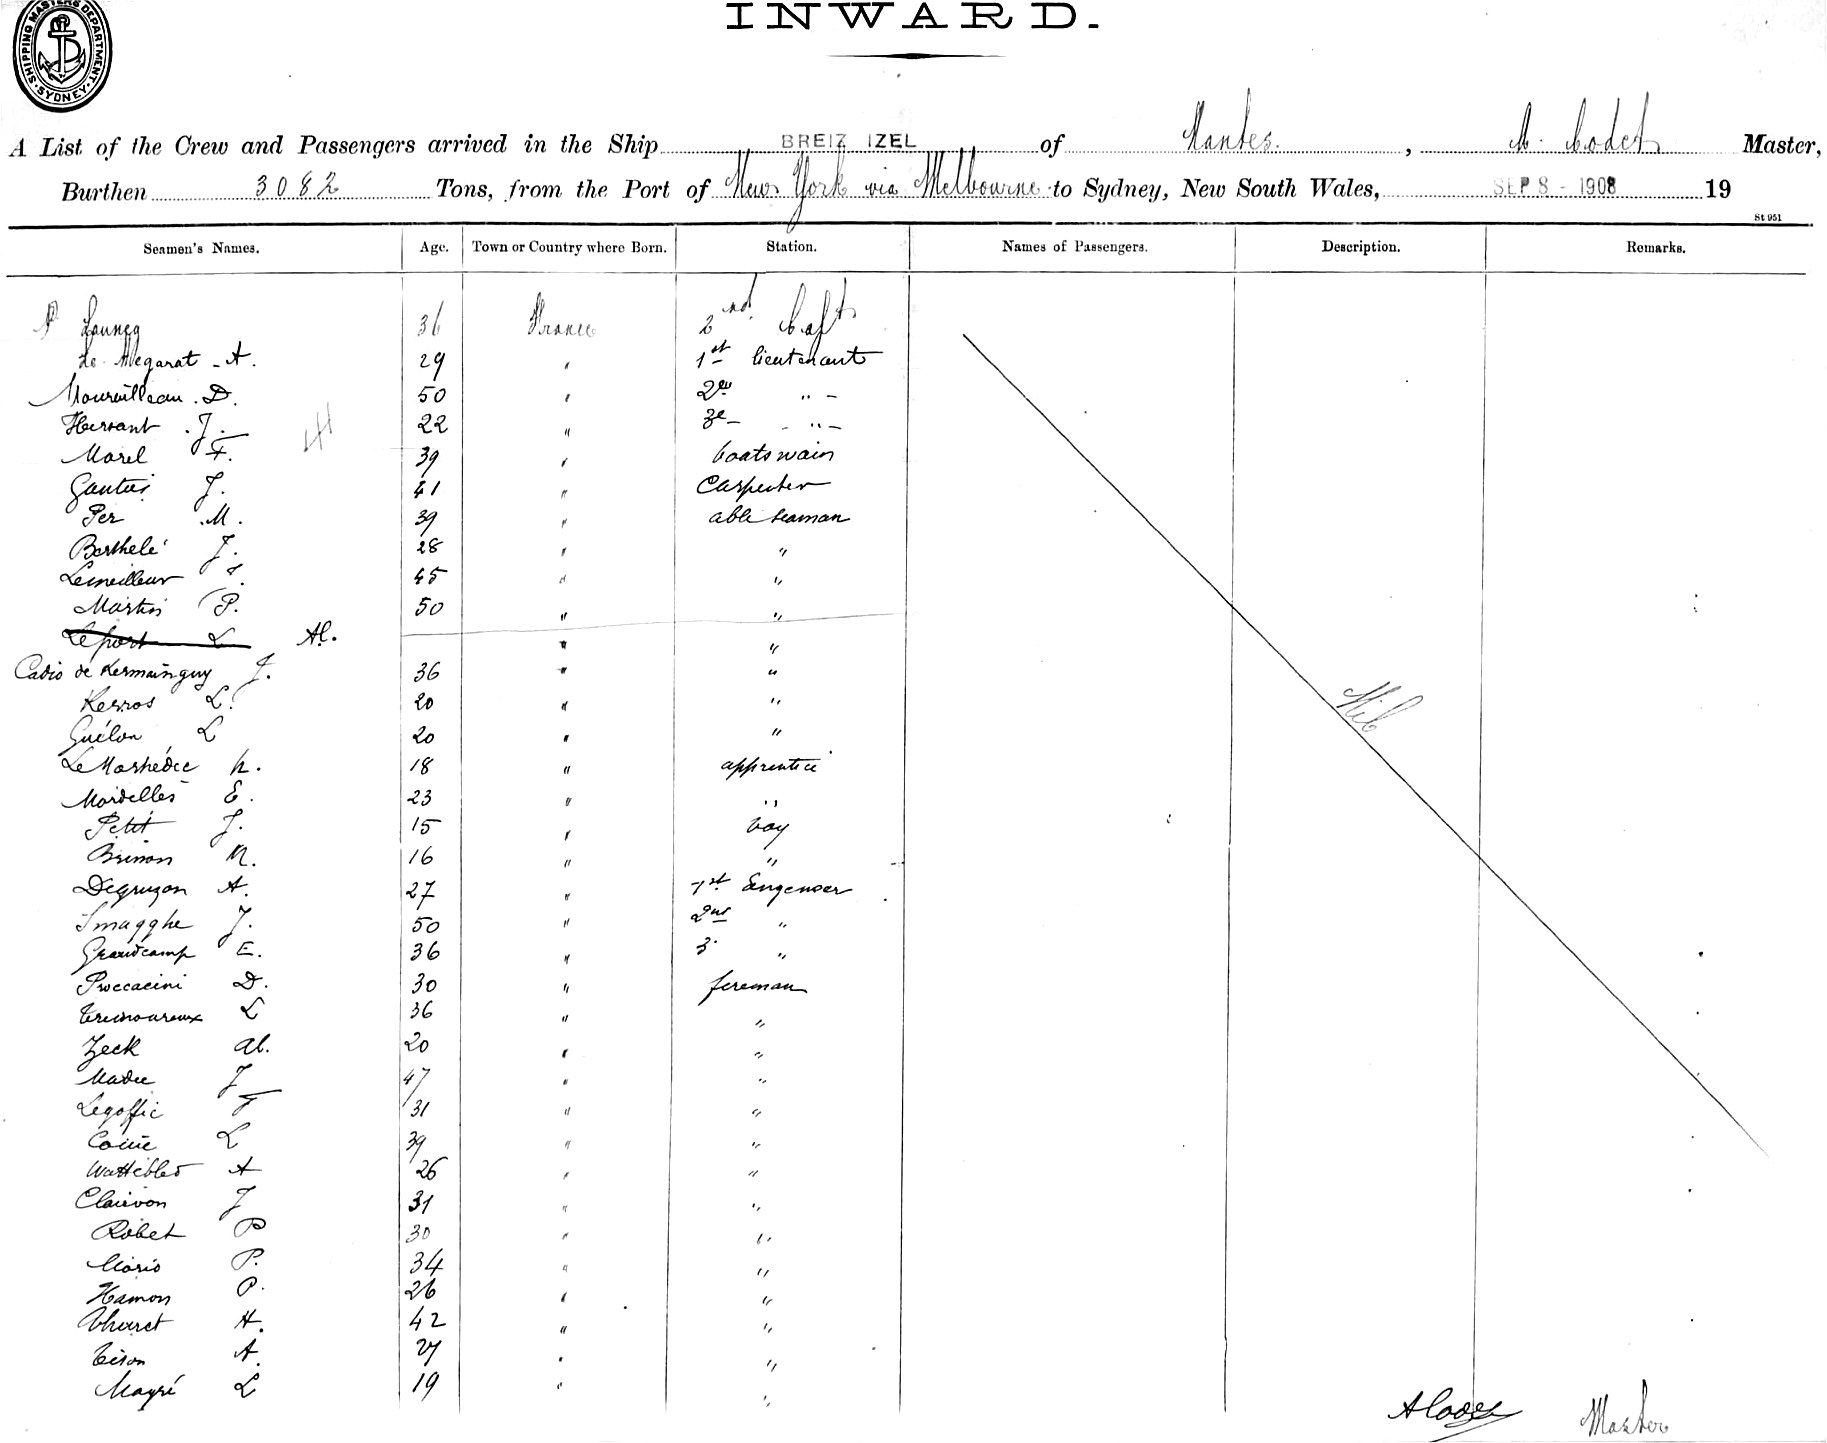 INWARD.
SHIPPING MASTERS DEPARTMENT. SYDNEY.
A List of the Crew and Passengers arrived in the Ship BREIZ IZEL of Nantes. , A. Codet Master,
Burthen 3082 Tons, from the Port of New York via Melbourne to Sydney, New South Wales, SEP 8 - 1908 19
St 951
Seamen's Names. Age. Town or Country where Born. Station. Names of Passengers. Description. Remarks.
P Launey 36 France 2nd Capt
de Megarat - A. 29 " 1st lieutenant
D. 50 " 2e " -
Hersant . J. 22 " 3e - " -
Morel F. 39 " boatswain
Gautier J. 41 " Carpenter
Per M. 39 " able seaman
Berthelé J. 28 " "
Lemeilleur J. 45 " "
Martin P. 50 " "
Leport L Al. " "
Cadio de Kermainguy J. 36 " "
Kerros L. 20 " "
Guélon L 20 " "
Le Marhédec h. 18 " apprentice
Mordelles E. 23 " "
Petit J. 15 " boy
Brinon M. 16 " "
Degruzon A. 27 " 1st Engeneer
Smagghe J. 50 " 2nd "
Grandcamp E. 36 " 3 "
Proccacini D. 30 " fireman
Tremoureux L 36 " "
Zeck Al. 20 " "
Madec J 47 " "
Legoffic F 31 " "
L 39 " "
Wattebled A 26 " "
Clairvon J 31 " "
Robet P 30 " "
P. 34 " "
Hamon P. 26 " "
Thuret H. 42 " "
Tison A. 27 " "
Mayré L 19 " "
Nil
A Codet Master